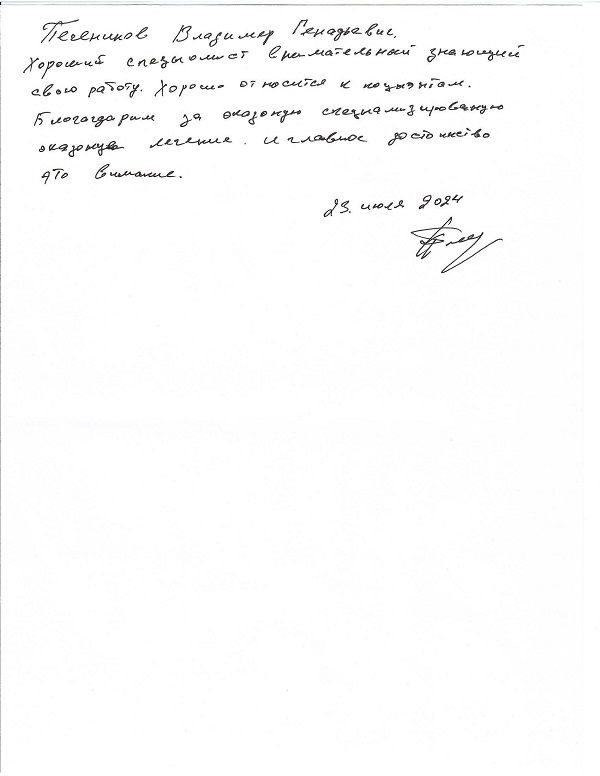 Печеников Владимер Генадьевис.
Хороший специолист внимательный знающий
свою работу. Хорошо относится к поцыэнтам.
Благогдарим за оказоную специализированую
оказоную легение. и главное достоинство
это внимание.
23. июля 2024